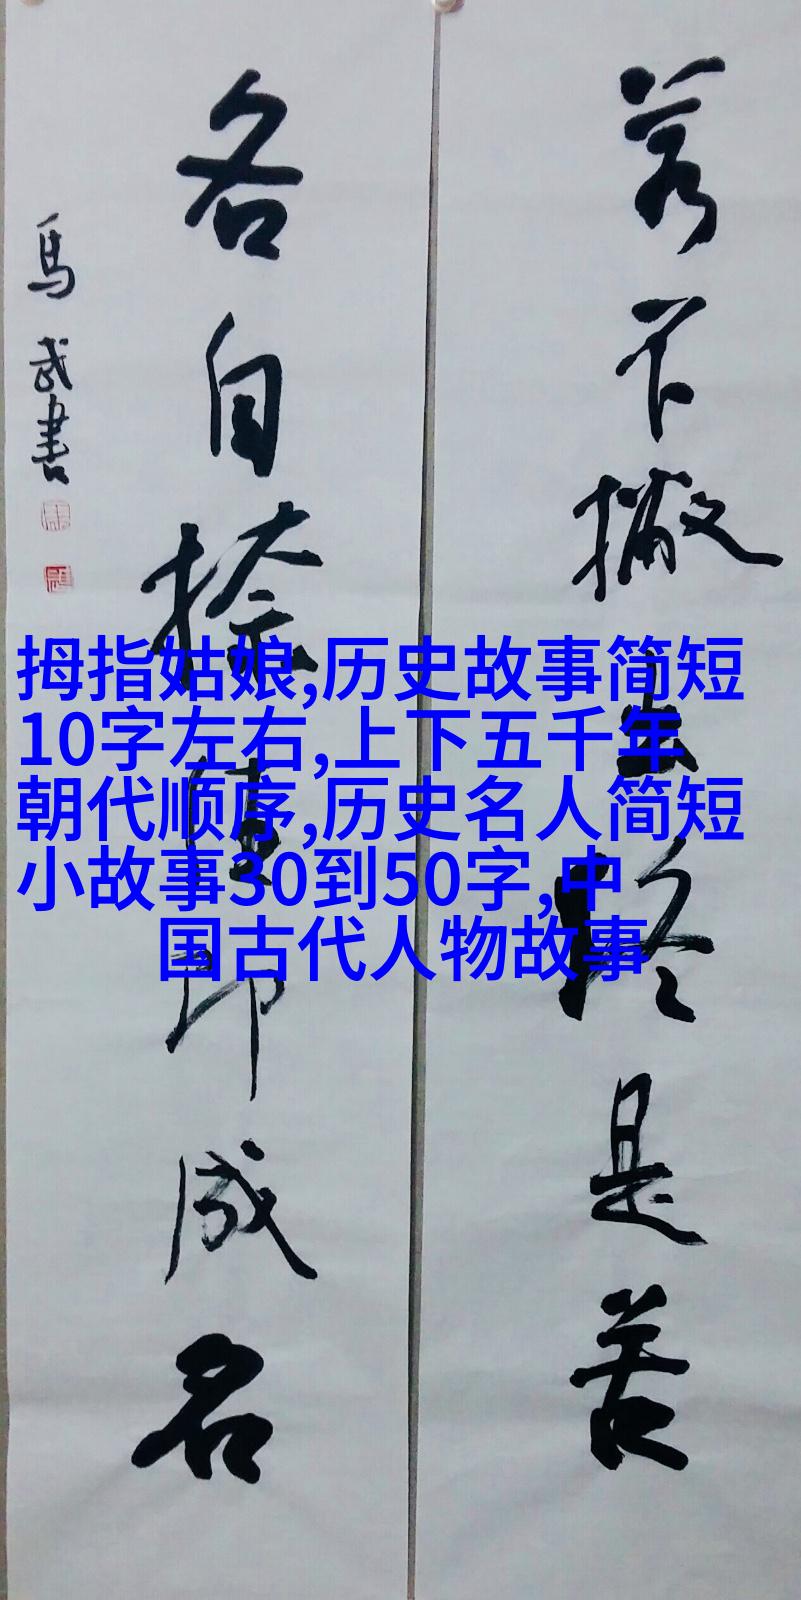 若不撇终是苦
各自捺即成名
馬武書
拇指姑娘,历史故事简短
10字左右,上下五千年
朝代顺序,历史名人简短
小故事30到50字,中
国古代人物故事